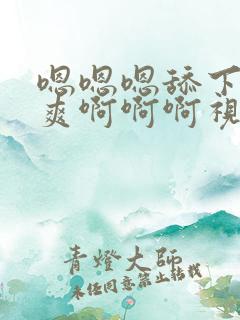 嗯嗯嗯舔下
爽啊啊啊視
青燈大師
未任同意禁止轉載